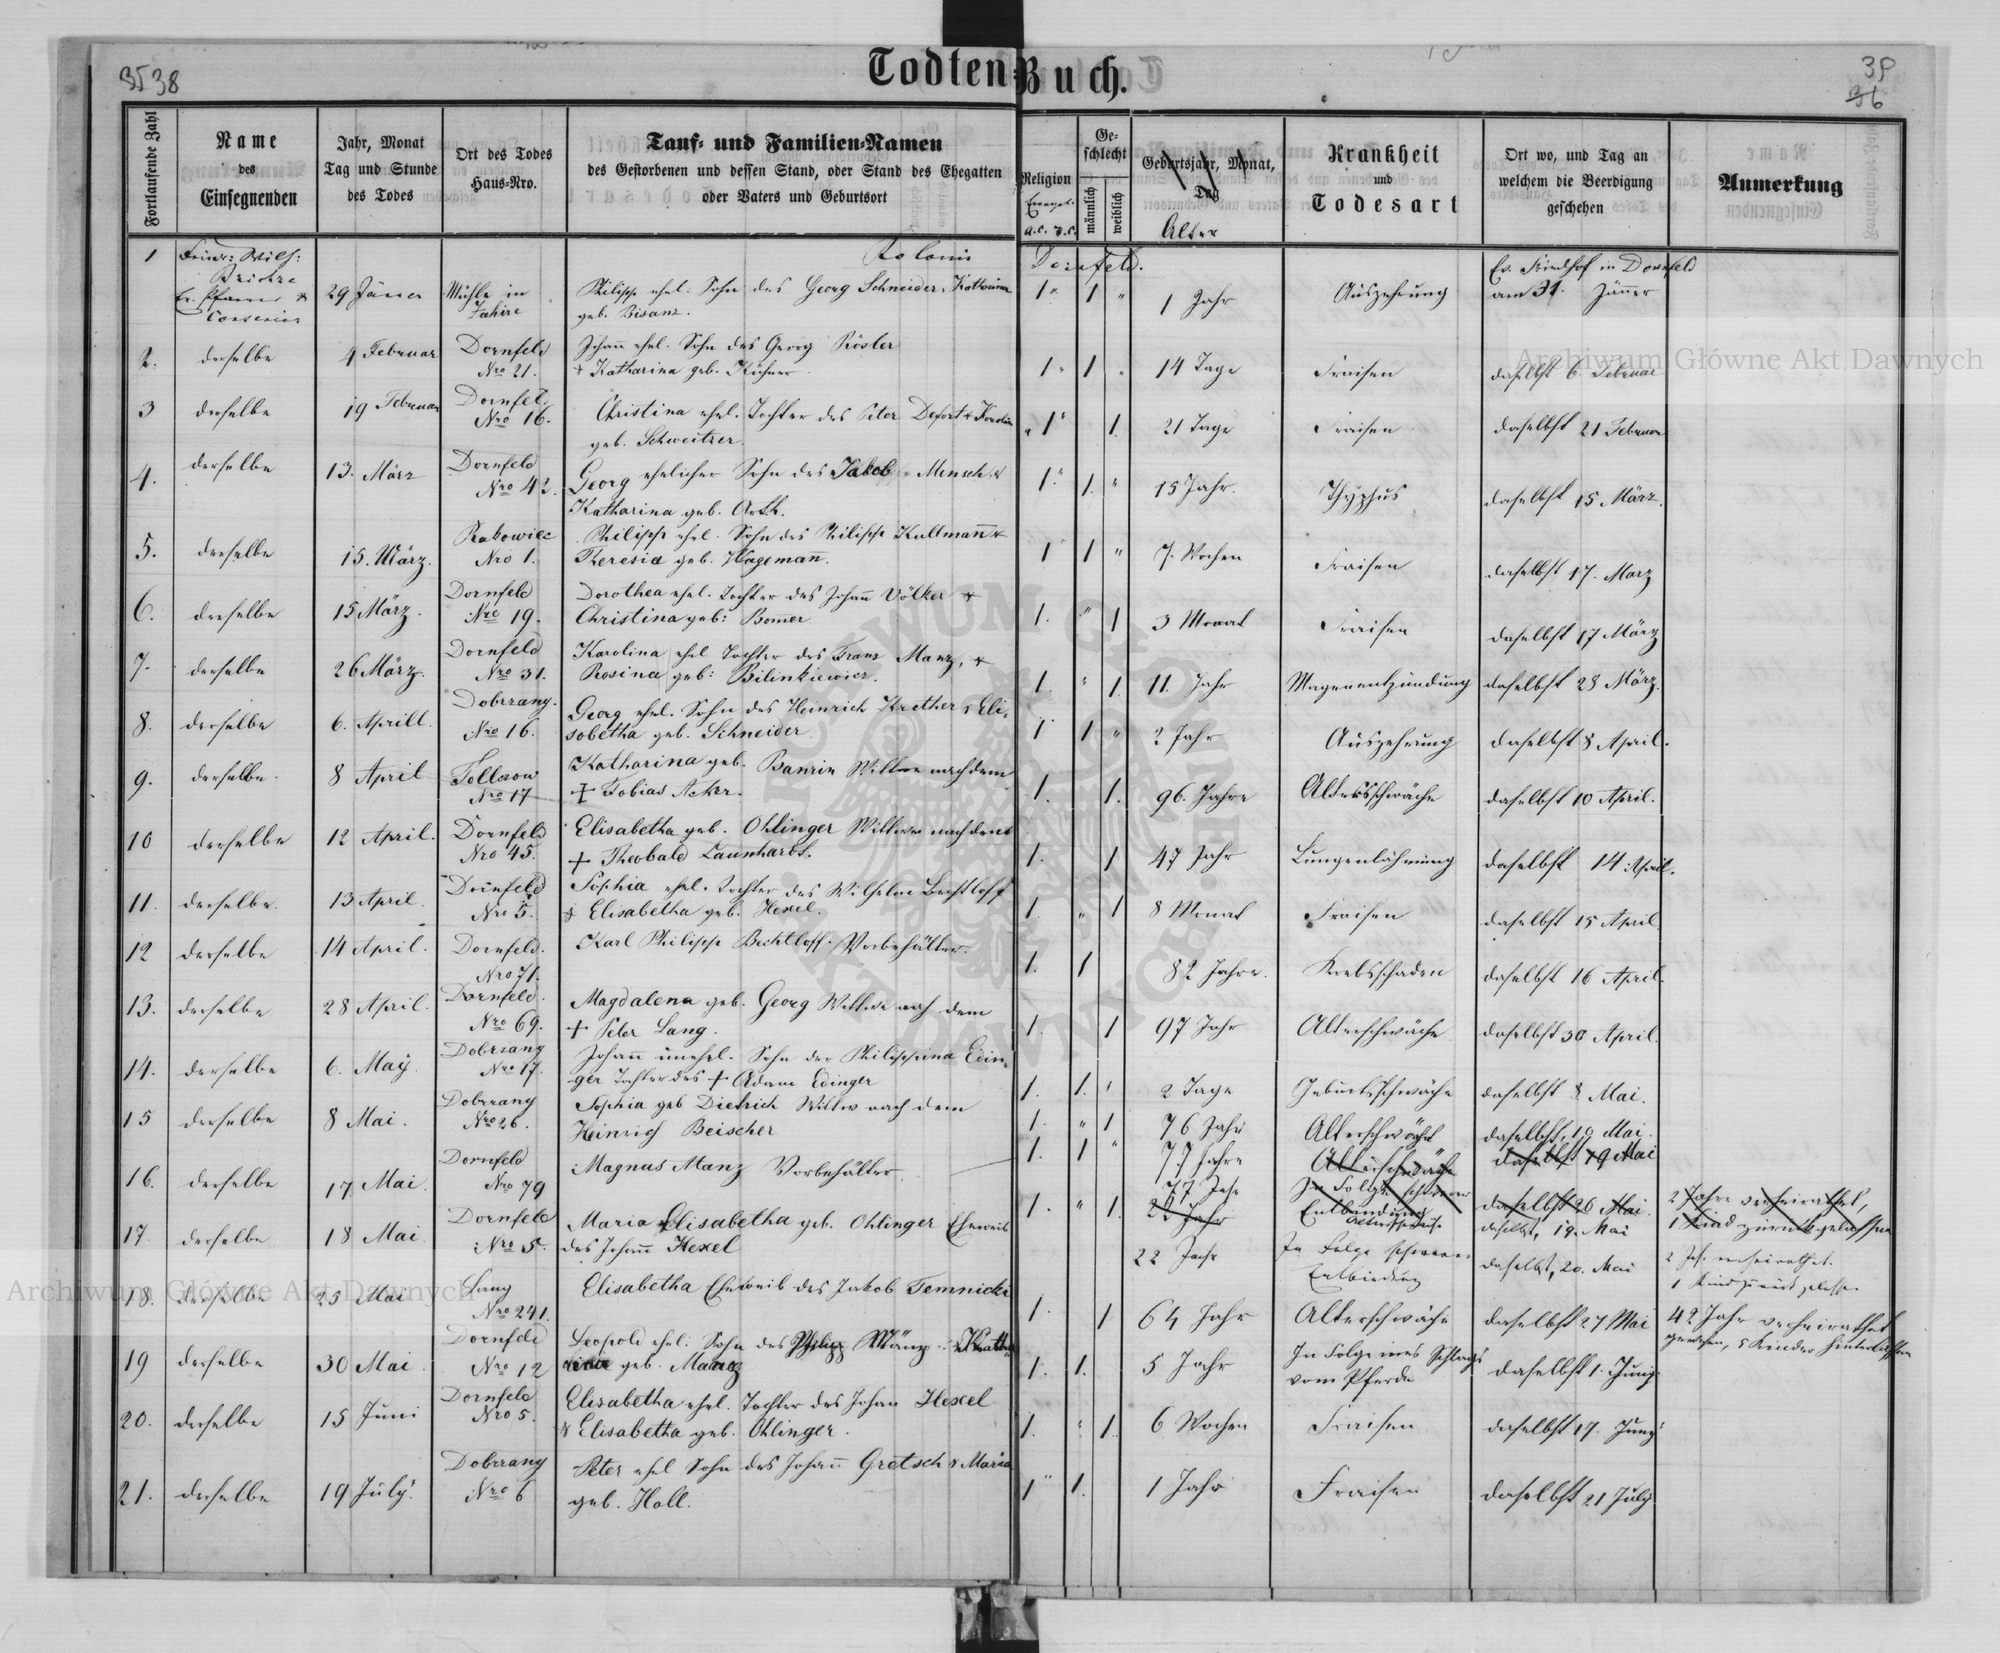 3538
Todten-Buch.
39
36
Fortlaufende Zahl
Name
des
Einsegnenden
Jahr, Monat
Tag und Stunde
des Todes
Ort des Todes
Haus-Nro.
Tauf- und Familien-Namen
des Gestorbenen und dessen Stand, oder Stand des Ehegatten
oder Vaters und Geburtsort
Religion
Evangel.
A.C. H.C.
Ge-
schlecht
männlich
weiblich
Geburtsjahr, Monat,
Tag
Alter
Krankheit
und
Todesart
Ort wo, und Tag an
welchem die Beerdigung
geschehen
Anmerkung
Kolonie Dornfeld.
1 29 Jänner Mühle in Philipp ehel. Sohn des Georg Schneider, Katharina 1 " 1 " 1 Jahr Auszehrung Ev. Friedhof in Dornfeld
geb. Bisanz. am 31. Jänner
2. derselbe 4 Februar Dornfeld Johann ehel. Sohn des Georg Rösler 1 " 1 " 14 Tage Fraisen daselbst 6. Februar
Nro 21. + Katharina geb. Kühner.
3 derselbe 19 Februar Dornfel. Christina ehel. Tochter des Peter 1 " 1. 21 Tage Fraisen daselbst 21 Februar
Nro 16. geb. Schweitzer.
4. derselbe 13. März Dornfeld Georg ehelicher Sohn des Jakob Mensch & 1. " 1. " 15 Jahr. Thyphus daselbst 15 März.
Nro 42. Katharina geb. Orth.
5. derselbe 15. März. Rakowiec Philipp ehel. Sohn des Philipp Kullmann & 1 " 1 " 7. Wochen Fraisen daselbst 17. März
Nro 1. Theresia geb. Hagemann.
6. derselbe 15 März. Dornfeld Dorothea ehel. Tochter des Johann Völker & 1. " 1 3 Monat Fraisen daselbst 17 März
Nro 19. Christina geb: Bomer
7. derselbe 26 März. Dornfeld Karolina ehel Tochter des Franz Manz, & 1. " 1. 11. Jahr Magenentzündung daselbst 28 März.
Nro 31. Rosina geb: Bilinkiewicz.
8. derselbe 6. Aprill. Dobrzany. Georg ehel. Sohn des Heinrich Krether & Eli- 1 1 " 2 Jahr Auszehrung daselbst 8 April.
Nro 16. sabetha geb. Schneider.
9. derselbe. 8 April Katharina geb. Wittwe nach dem 1. 1. 96. Jahre Altersschwäche daselbst 10 April.
Nro 17 + Tobias Acker.
10 derselbe 12 April. Dornfeld Elisabetha geb. Ohlinger Wittwe nach dem 1. 1 47 Jahr Lungenlähmung daselbst 14 April.
Nro 45. + Theobald Launhardt.
11. derselbe. 13 April. Dornfeld Sophia ehel. Tochter des Wilhelm Bechtloff 1. " 1 8 Monat Fraisen daselbst 15 April
Nro 5. & Elisabetha geb. Hexel.
12 derselbe 14 April. Dornfeld. Karl Philipp Bechtloff. Vorbehälter. 1. 1 82 Jahre. Krebsschaden daselbst 16 April.
Nro 71.
13. derselbe 28 April. Dornfeld. Magdalena geb. Georg Wittwe nach dem 1. 1 97 Jahr Alterschwäche daselbst 30 April.
Nro 69. + Peter Lang.
14. derselbe 6. May. Dobrzany Johann unehel. Sohn der Philippina Edin- 1. 1. " 2 Tage Geburtsschwäche daselbst 8 Mai.
Nro 17. ger Tochter des + Adam Edinger
15 derselbe 8 Mai. Dobrzany Sophia geb Dietrich Wittw nach dem 1. " 1 76 Jahr Alterschwäche daselbst, 10 Mai.
Nro 26. Heinrich Beischer
16. derselbe 17. Mai. Dornfeld Magnus Manz Vorbehälter. 1. 1 " 77 Jahre Alterschwäche daselbst 19 Mai
Nro 79 77 Jahr daselbst, 19. Mai
17. derselbe 18 Mai Dornfeld Maria Elisabetha geb. Ohlinger Eheweib 1. " 1. 22 Jahr In Folge schwerer Entbindung daselbst 20 Mai. 2 Jahre verheirathet,
1 Kind zurückgelassen
Nro 5. des Johann Hexel 22 Jahr In Folge schwerer Entbindung daselbst, 20. Mai 2 Jah. verheirathet.
18. derselbe 25 Mai Lany Elisabetha Eheweib des Jakob Temnicki 1. 1 64 Jahr Alterschwäche daselbst 27 Mai 42 Jahr verheirathet
Nro 241. gewesen, 5 Kinder hinterlassen
19 derselbe 30 Mai. Dornfeld Leopold ehel: Sohn des Philipp Mänz 1. 1. 5 Jahr In Folge eines Schlags daselbst 1. Juny.
Nro 12 geb. Manz vom Pferde
20. derselbe 15 Juni Dornfeld Elisabetha ehel. Tochter des Johan Hexel 1. " 1. 6 Wochen Fraisen daselbst 17. Juny
Nro 5. & Elisabetha geb. Ohlinger.
21. derselbe 19 July. Dobrzany Peter ehel Sohn des Johann Gretsch & Maria 1 " 1. 1 Jahr Fraisen daselbst 21 July
Nro 6 geb. Holl.
Archiwum Główne Akt Dawnych
Archiwum Główne Akt Dawnych